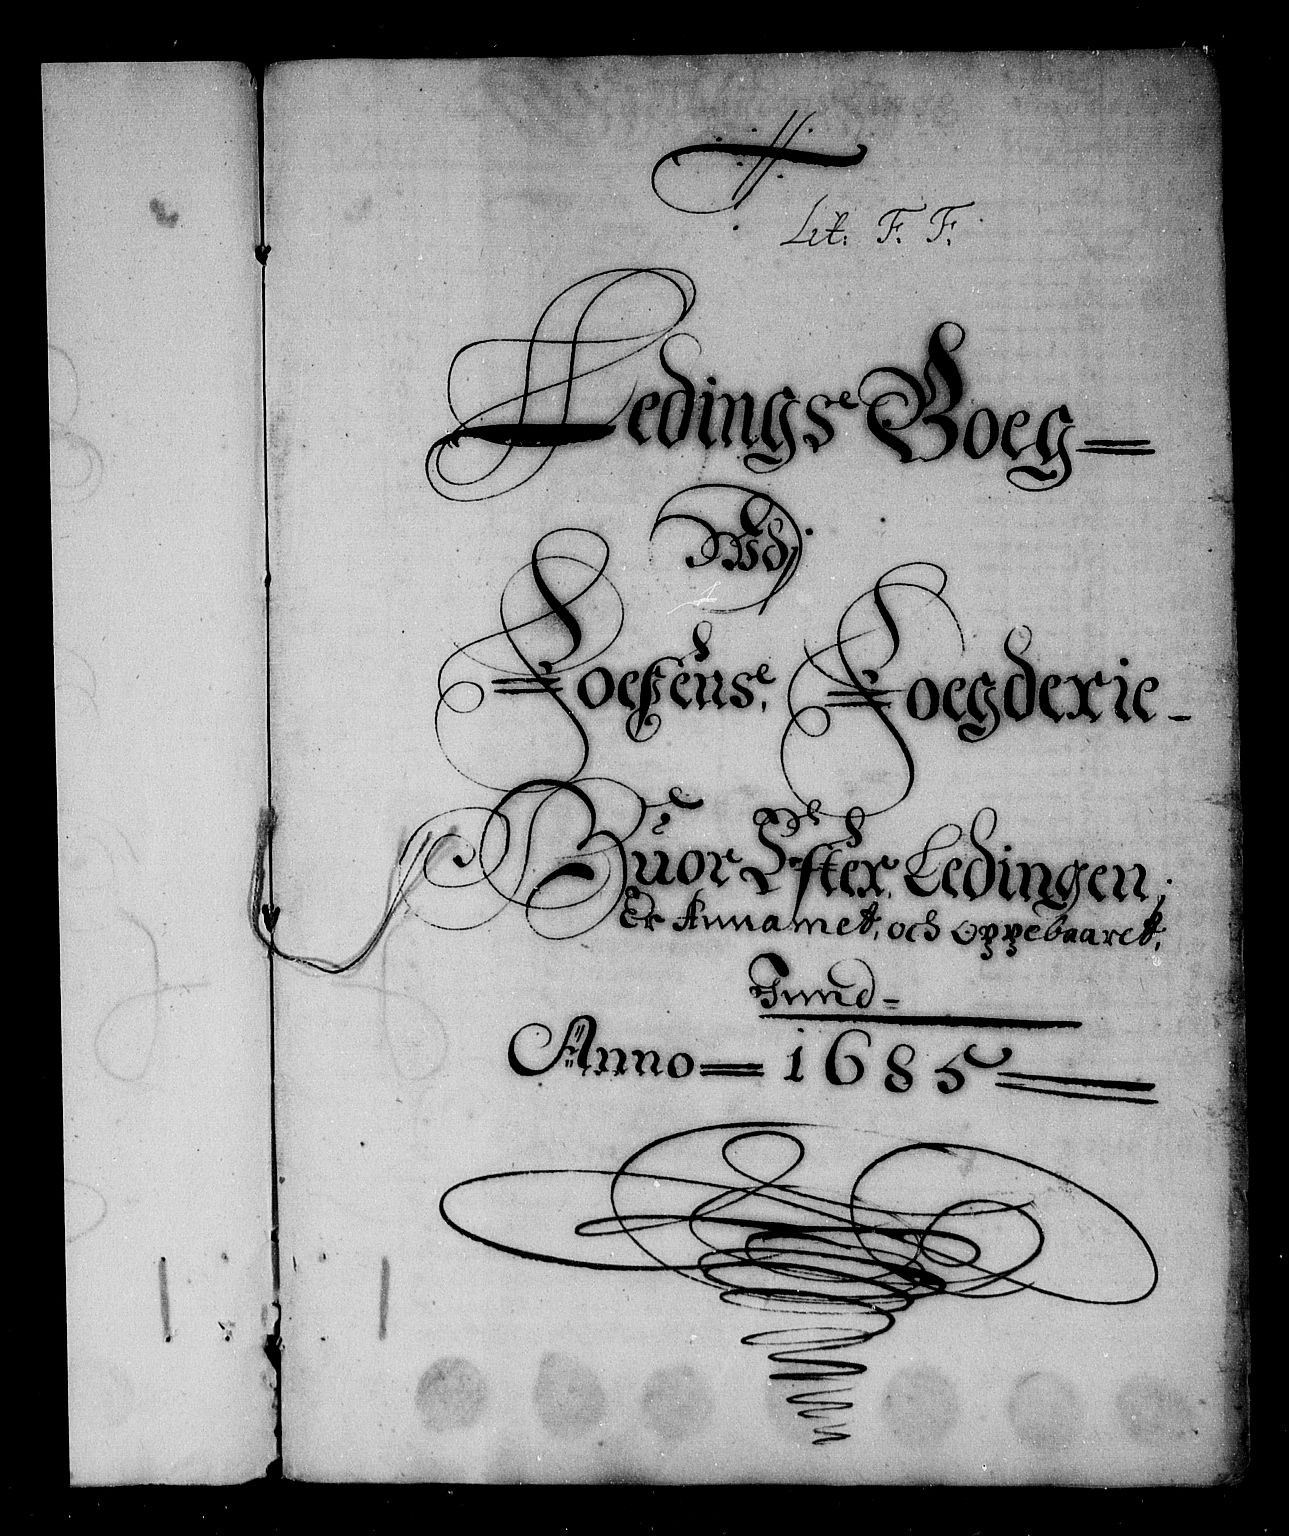 Lit. F. F.
Ledings Boeg
Wd
Foesens Foegderie
Huor Efter Ledingen,
Er Annamet, och oppebaaret,
Anno 1685